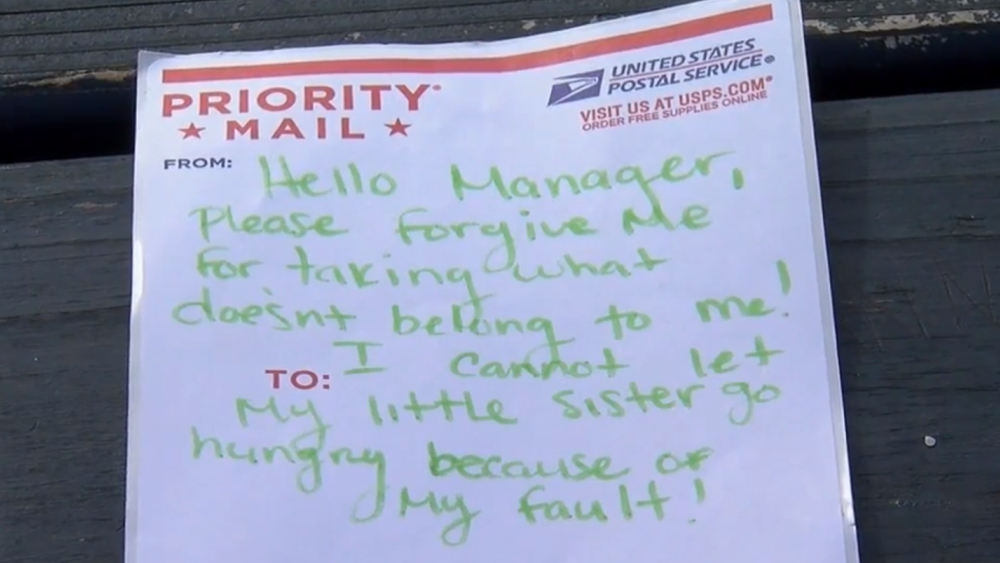 UNITED STATES
POSTAL SERVICE®
PRIORITY®
★ MAIL ★
VISIT US AT USPS.COM®
ORDER FREE SUPPLIES ONLINE
FROM:
Hello Manager,
Please forgive Me
for taking what
doe'snt belong to me!
I cannot let
TO:
My little sister go
hungry because of
My fault!